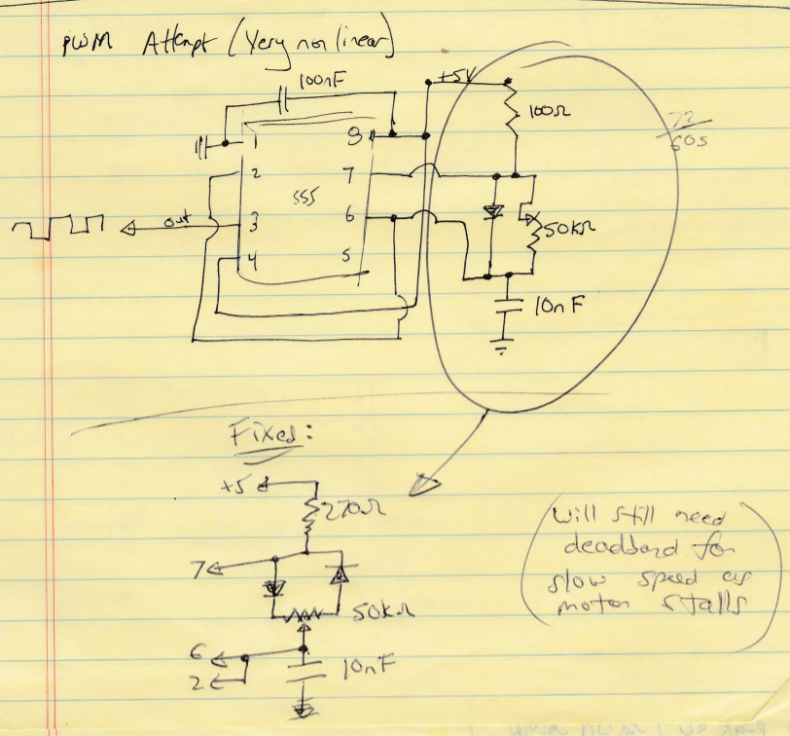 PWM Attempt (Very non linear)
100nF
+5V
100Ω
1
8
2
7
555
3
6
4
5
out
50kΩ
10nF
Fixed:
+5
270Ω
7
50kΩ
6
2
10nF
Will still need
deadband for
slow speed as
motor stalls